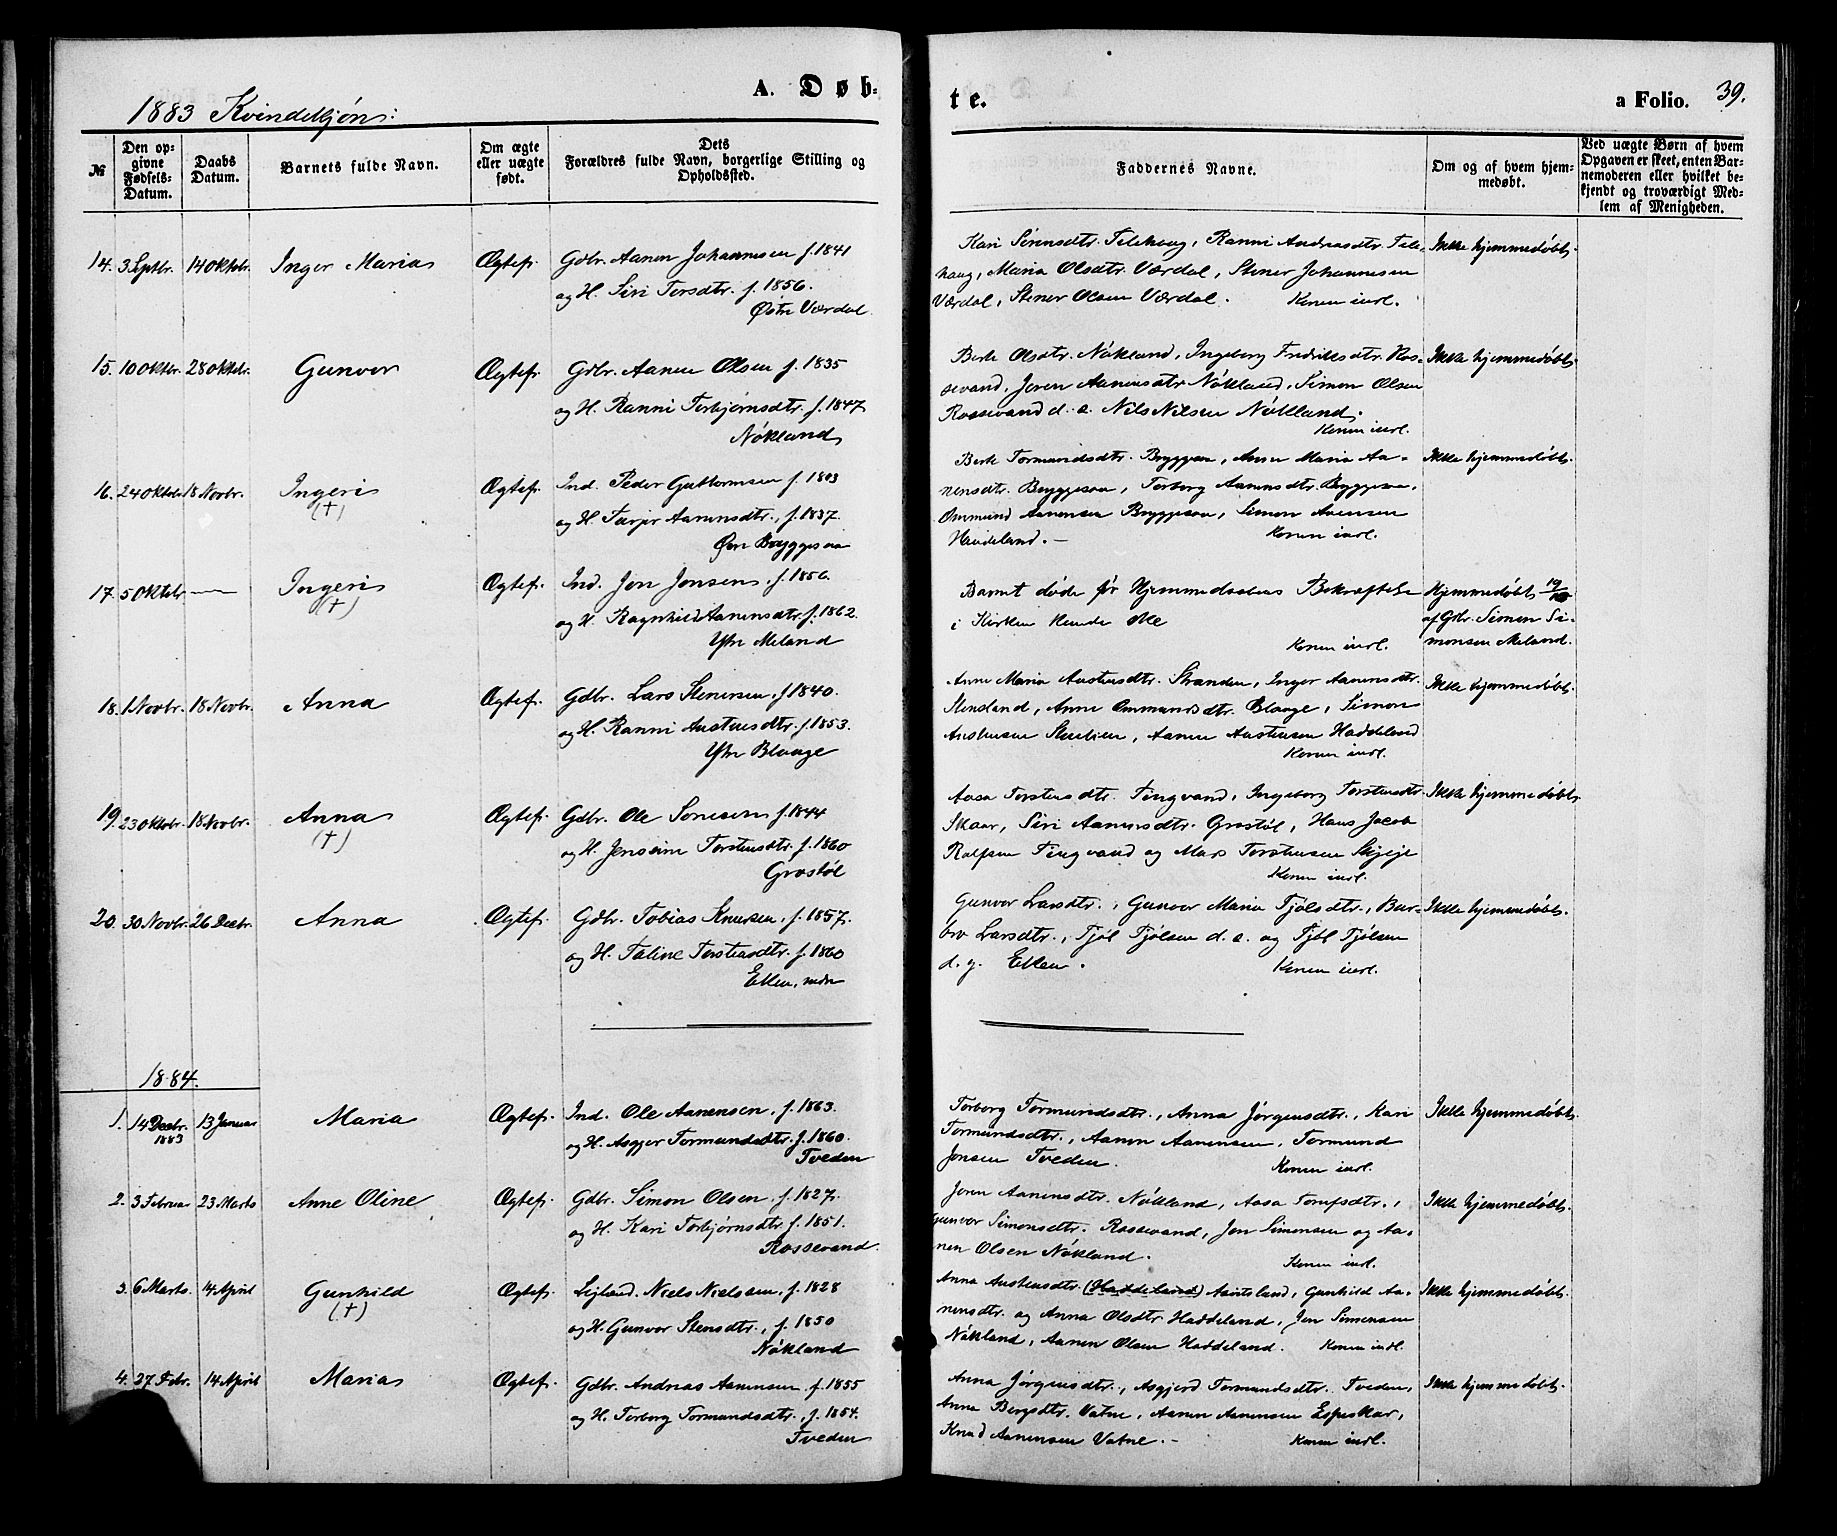 A. Døb-
te.
a Folio. 39.
1883 Kvindekjøn:
№
Den op-
givne
Fødsels-
Datum.
Daabs
Datum.
Barnets fulde Navn.
Om ægte
eller uægte
født.
Dets
Forældres fulde Navn, borgerlige Stilling og
Opholdssted.
Faddernes Navne.
Om og af hvem hjem-
medøbt.
Ved uægte Børn af hvem
Opgaven er skeet, enten Bar-
nemoderen eller hvilket be-
kjendt og troværdigt Med-
lem af Menigheden.
14. 3 Septbr. 14 Oktobr. Inger Maria Ægtef. Gdbr. Aanen Johannesen f. 1841
og H. Siri Torsdtr. f. 1856.
Østre Værdal.
Kari Sørensdtr. Telehaug, Ranni Andreasdtr. Tele-
haug, Maria Olsdtr. Værdal, Stener Johannesen
Værdal, Stener Olsen Værdal. Konen indl.
Ikke hjemmedøbt.
15. 10 Oktbr. 28 Oktbr. Gunvor Ægtef. Gdbr. Aanen Olsen f. 1835
og H. Ranni Torbjørnsdtr. f. 1847
Nökland
Berte Olsdtr. Nökland, Ingeborg Fredriksdtr. Ros-
sevand, Joren Aanensdtr. Nökland, Simon Olsen
Rossevand d. s. Nils Nilsen Nökland.
Konen indl.
Ikke hjemmedøbt.
16. 24 Oktbr. 18 Novbr. Ingeri Ægtef. Ind. Peder Guttormsen f. 1803
(†)
og H. Tarjer Aanensdtr., f. 1837.
Øvre Bryggesaa
Berte Tormundsdtr. Bryggesaa, Anne Maria Aa-
nensdtr. Bryggesaa, Torborg Aanensdtr. Bryggesaa,
Ommund Aanensen Bryggesaa, Simon
Haddeland. - Konen indl.
Ikke hjemmedøbt.
17. 5 Oktbr. — Ingeri Ægtef. Ind. Jon Jonsen, f. 1856.
(†)
og H. Ragnhild Aanensdtr. f. 1862.
Ytre Meland
Barnet døde før Hjemmedaabens Bekræftelse
i Kirken kunde ske
Konen indl.
Hjemmedøbt 19/10
af Gbr. Simon Si-
monsen Meland.
18. 1 Novbr. 18 Novbr. Anna Ægtef. Gdbr. Lars Stenersen, f 1840.
og H. Ranni Austensdtr. f. 1853.
Ytre Blaage
Anne Maria Austensdtr. Stranden, Inger Aanensdtr.
Stensland, Anne Ommundsdtr. Blaage, Simon
Austensen, Aanen Austensen Haddeland
Konen indl.
Ikke hjemmedøbt.
19. 23 Oktobr. 18 Novbr. Anna Ægtef. Gdbr. Ole f. 1844
(†)
og H. Jensine Torstensdtr. f. 1860
Grostöl
Aasa Torstensdtr. Tingvand, Ingeborg Torstensdtr.
Skaar, Siri Aanensdtr. Grostöl, Hans Jacob
Rolfsen Tingvand og Mass Torstensen Skjeje
Konen indl.
Ikke hjemmedøbt.
20. 30 Novbr. 26 Decbr. Anna Ægtef. Gdbr. Tobias Knutsen, f. 1857.
og H. Taline Torstensdtr. f. 1860
Eken, nedre
Gunvor Larsdtr., Gunvor Maria Tjölsdtr., Bar-
bro Larsdtr., Tjöl Tjölsen d. e. og Tjöl Tjölsen
d. y. Eken. Konen indl.
Ikke hjemmedøbt.
1884.
1. 14 Decbr. 1883 13 Januar Maria Ægtef. Ind. Ole Aanensen, f. 1863.
og H. Asgjer Tormundsdtr. f. 1860.
Tveden
Torborg Tormundsdtr., Anna Jørgensdtr., Kari
Tormundsdtr., Aanen Aanensen, Tormund
Jonsen Tveden. Konen indl.
Ikke hjemmedøbt.
2. 3 Februar 23 Marts Anne Oline Ægtef. Gdbr. Simon Olsen, f. 1827.
og H. Kari Torbjørnsdtr. f. 1851.
Rossevand.
Joren Aanensdtr. Nökland, Aasa,
Gunvor Simonsdtr. Rossevand, Jon Simonsen og Aa-
nen Olsen Nökland. Konen indl.
Ikke hjemmedøbt.
3. 6 Marts. 14 April Gunhild Ægtef. Niels Nielsen, f. 1828
(†)
og H. Gunvor Stensdtr., f. 1850
Nökland
Anna Austensdtr. (Haddeland), Gunhild Aa-
nensdtr. og Anna Olsdtr Haddeland, Jon Simonsen
Nökland, Aanen Olsen Haddeland. Konen indl.
Ikke hjemmedøbt.
4. 27 Febr. 14 April Maria Ægtef. Gdbr. Andreas Aanensen, f. 1855
og H. Torborg Tormundsdtr., f. 1854.
Tveden
Anna Jørgensdtr., Asgjerd Tormundsdtr. Tveden,
Anna Bergsdtr. Vatne, Aanen Aanensen Espeskar,
Knud Aanensen Vatne. - Konen indl.
Ikke hjemmedøbt.